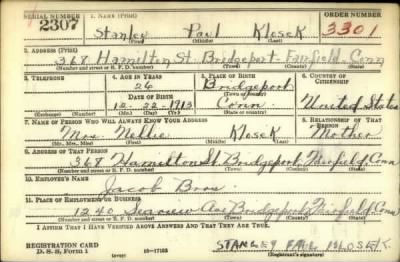 SERIAL NUMBER
1. NAME (Print)
ORDER NUMBER
2307
Stanley Paul Klosek
3301
(First) (Middle) (Last)
2. ADDRESS (Print)
368 Hamilton St. Bridgeport Fairfield Conn
(Number and street or R. F. D. number) (Town) (County) (State)
3. TELEPHONE
4. AGE IN YEARS
5. PLACE OF BIRTH
6. COUNTRY OF CITIZENSHIP
26
Bridgeport
(Town or county)
DATE OF BIRTH
12-22-1913
Conn
United States
(Exchange) (Number)
(Mo.) (Day) (Yr.)
(State or country)
7. NAME OF PERSON WHO WILL ALWAYS KNOW YOUR ADDRESS
8. RELATIONSHIP OF THAT PERSON
Mrs. Nellie Klosek
Mother
(Mr., Mrs., Miss) (First) (Middle) (Last)
9. ADDRESS OF THAT PERSON
368 Hamilton St. Bridgeport, Fairfield, Conn
(Number and street or R. F. D. number) (Town) (County) (State)
10. EMPLOYER'S NAME
Jacob Bros
11. PLACE OF EMPLOYMENT OR BUSINESS
1240 Seaview Ave Bridgeport, Fairfield, Conn
(Number and street or R. F. D. number) (Town) (County) (State)
I AFFIRM THAT I HAVE VERIFIED ABOVE ANSWERS AND THAT THEY ARE TRUE.
REGISTRATION CARD
D. S. S. Form 1
(over)
16-17105
STANLEY PAUL KLOSEK
(Registrant's signature)